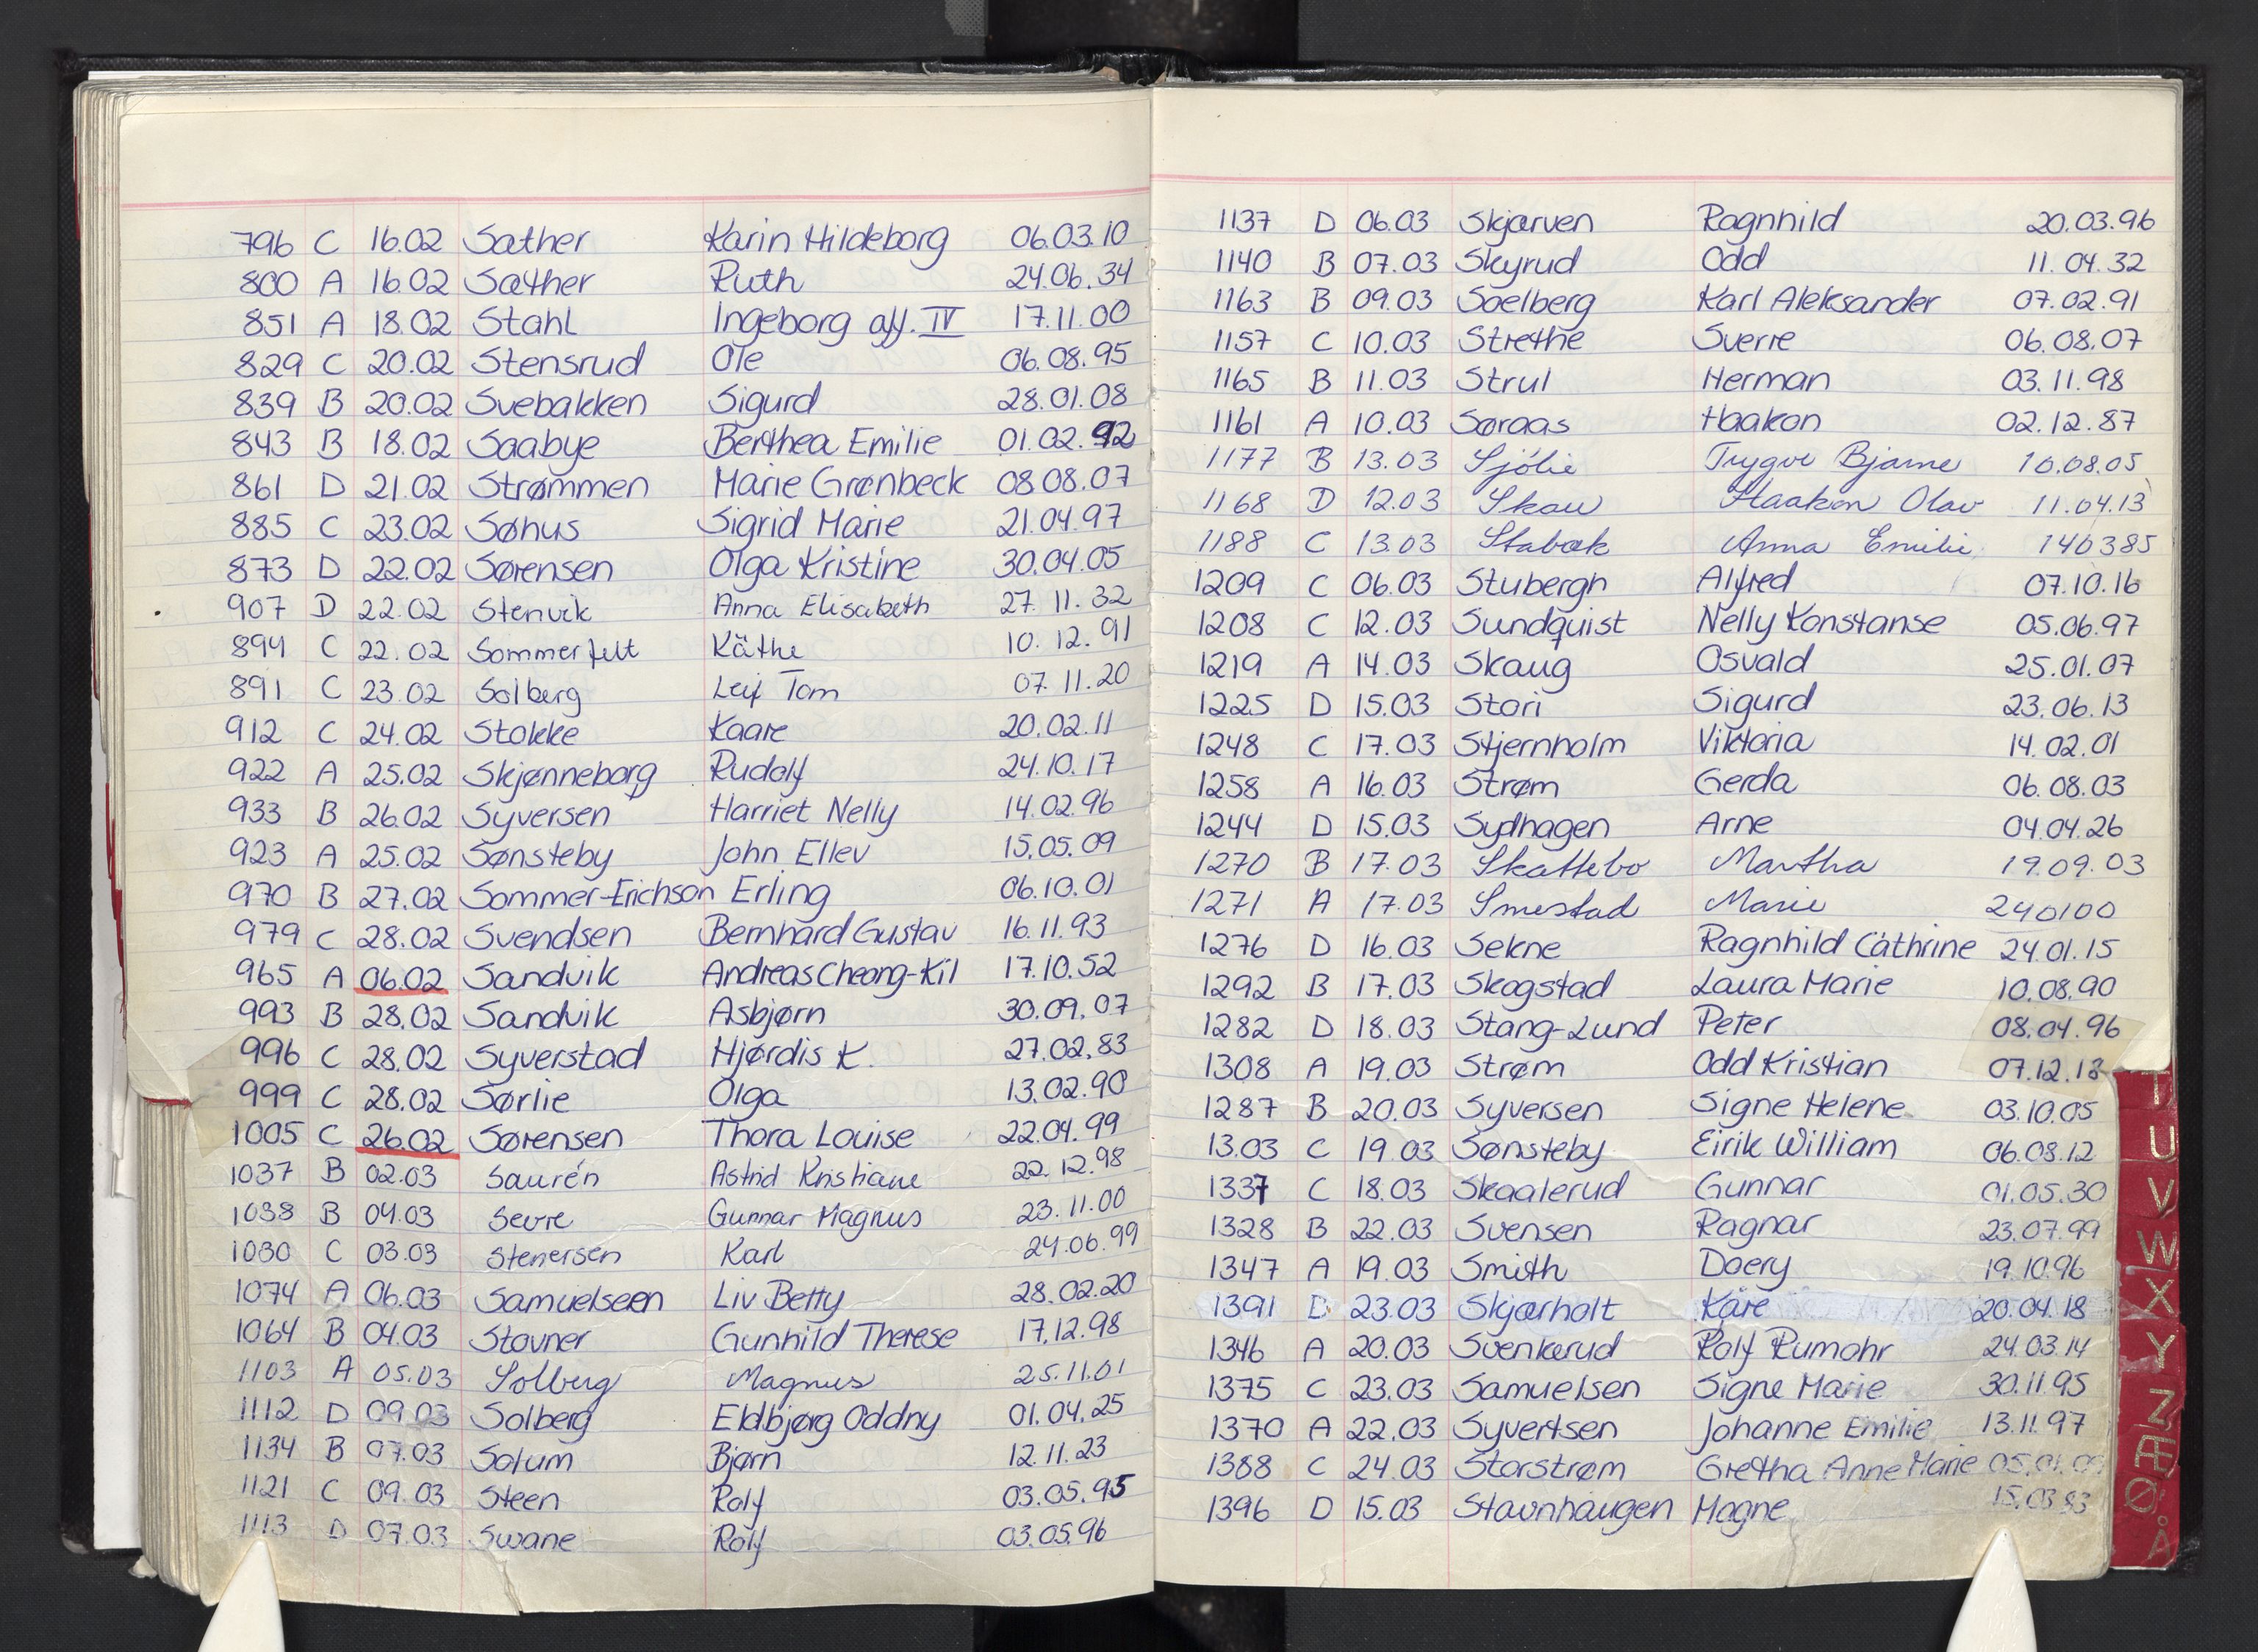 796 C 16.02 Sæther Karin Hildeborg 06.03.10
800 A 16.02 Sæther Ruth 24.06.34
851 A 18.02 Stahl Ingeborg aff. IV 17.11.00
829 C 20.02 Stensrud Ole 06.08.95
839 B 20.02 Svebakken Sigurd 28.01.08
843 B 18.02 Saabye Berthea Emilie 01.02.92
861 D 21.02 Strømmen Marie Grønbeck 08.08.07
885 C 23.02 Søhus Sigrid Marie 21.04.97
873 D 22.02 Sørensen Olga Kristine 30.04.05
907 D 22.02 Stenvik Anna Elisabeth 27.11.32
894 C 22.02 Sommerfelt Käthe 10.12.91
891 C 23.02 Solberg Leif Tom 07.11.20
912 C 24.02 Stokke Kaare 20.02.11
922 A 25.02 Skjønneborg Rudolf 24.10.17
933 B 26.02 Syversen Harriet Nelly 14.02.96
923 A 25.02 Sønsteby John Ellev 15.05.09
970 B 27.02 Sommer-Erichson Erling 06.10.01
979 C 28.02 Svendsen Bernhard Gustav 16.11.93
965 A 06.02 Sandvik Andreas Cheong-Kil 17.10.52
993 B 28.02 Sandvik Asbjørn 30.09.07
996 C 28.02 Syverstad Hjørdis K. 27.02.83
999 C 28.02 Sørlie Olga 13.02.90
1005 C 26.02 Sørensen Thora Louise 22.04.99
1037 B 02.03 Saurén Astrid Kristiane 22.12.98
1038 B 04.03 Sevre Gunnar Magnus 23.11.00
1030 C 03.03 Stenersen Karl 24.06.99
1074 A 06.03 Samuelseen Liv Betty 28.02.20
1064 B 04.03 Stovner Gunhild Therese 17.12.98
1103 A 05.03 Solberg Magnus 25.11.01
1112 D 09.03 Solberg Eldbjørg Oddny 01.04.25
1134 B 07.03 Solum Bjørn 12.11.23
1121 C 09.03 Steen Rolf 03.05.95
1113 D 07.03 Swane Rolf 03.05.96
1137 D 06.03 Skjærven Ragnhild 20.03.96
1140 B 07.03 Skyrud Odd 11.04.32
1163 B 09.03 Soelberg Karl Aleksander 07.02.91
1157 C 10.03 Strethe Sverre 06.08.07
1165 B 11.03 Strul Herman 03.11.98
1161 A 10.03 Søraas Haakon 02.12.87
1177 B 13.03 Sjölie Trygve Bjarne 10.08.05
1168 D 12.03 Skau Haakon Olav 11.04.13
1188 C 13.03 Stabæk Anna Emilie 140385
1209 C 06.03 Stubergh Alfred 07.10.16
1208 C 12.03 Sundquist Nelly Konstanse 05.06.97
1219 A 14.03 Skaug Osvald 25.01.07
1225 D 15.03 Stori Sigurd 23.06.13
1248 C 17.03 Stjernholm Viktoria 14.02.01
1258 A 16.03 Strøm Gerda 06.08.03
1244 D 15.03 Sydhagen Arne 04.04.26
1270 B 17.03 Skattebo Martha 19.09.03
1271 A 17.03 Smestad Marie 240100
1276 D 16.03 Sekne Ragnhild Cathrine 24.01.15
1292 B 17.03 Skogstad Laura Marie 10.08.90
1282 D 18.03 Stang-Lund Peter 08.04.96
1308 A 19.03 Strøm Odd Kristian 07.12.18
1287 B 20.03 Syversen Signe Helene 03.10.05
13.03 C 19.03 Sønsteby Eirik William 06.08.12
1337 C 18.03 Skaalerud Gunnar 01.05.30
1328 B 22.03 Svensen Ragnar 23.07.99
1347 A 19.03 Smith Doery 19.10.96
1391 D 23.03 Skjærholt Kåre 20.04.18
1346 A 20.03 Svenkerud Rolf Rumohr 24.03.14
1375 C 23.03 Samuelsen Signe Marie 30.11.95
1370 A 22.03 Syvertsen Johanne Emilie 13.11.97
1388 C 24.03 Storstrøm Gretha Anne Marie
1396 D 15.03 Staunhaugen Magne 15.03.83
T
U
V
W
X
Y
Z
Æ
Ø
Å